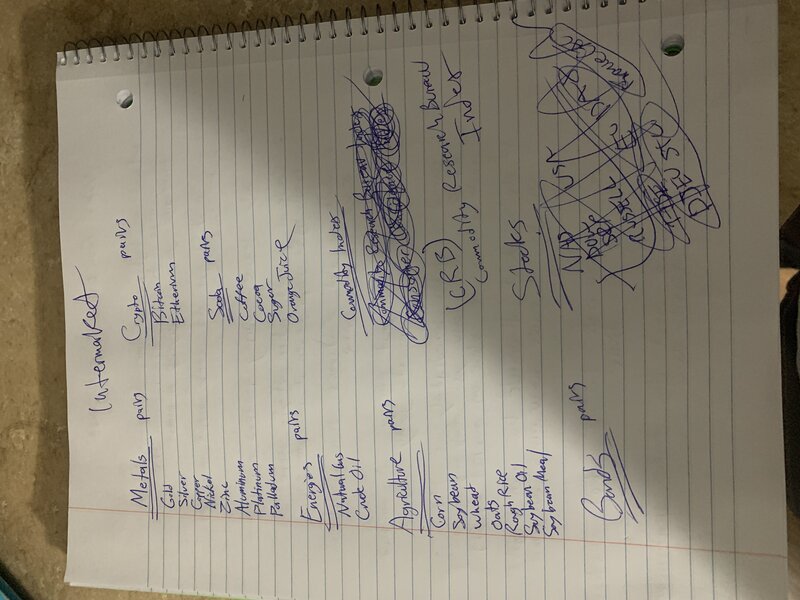 Intermarket
Metals pairs
Gold
Silver
Copper
Nickel
Zinc
Aluminum
Platinum
Palladium
Energies pairs
Natural Gas
Crude Oil
Agriculture pairs
Corn
Soybean
Wheat
Oats
Rough Rice
Soybean Oil
Soybean Meal
Bonds pairs
Crypto pairs
Bitcoin
Etherium
pairs
Coffee
Cocoa
Sugar
Orange Juice
Commodity Index
Commodity Research Bureau Index
(CRB)
Commodity Research Bureau
Index
Stocks